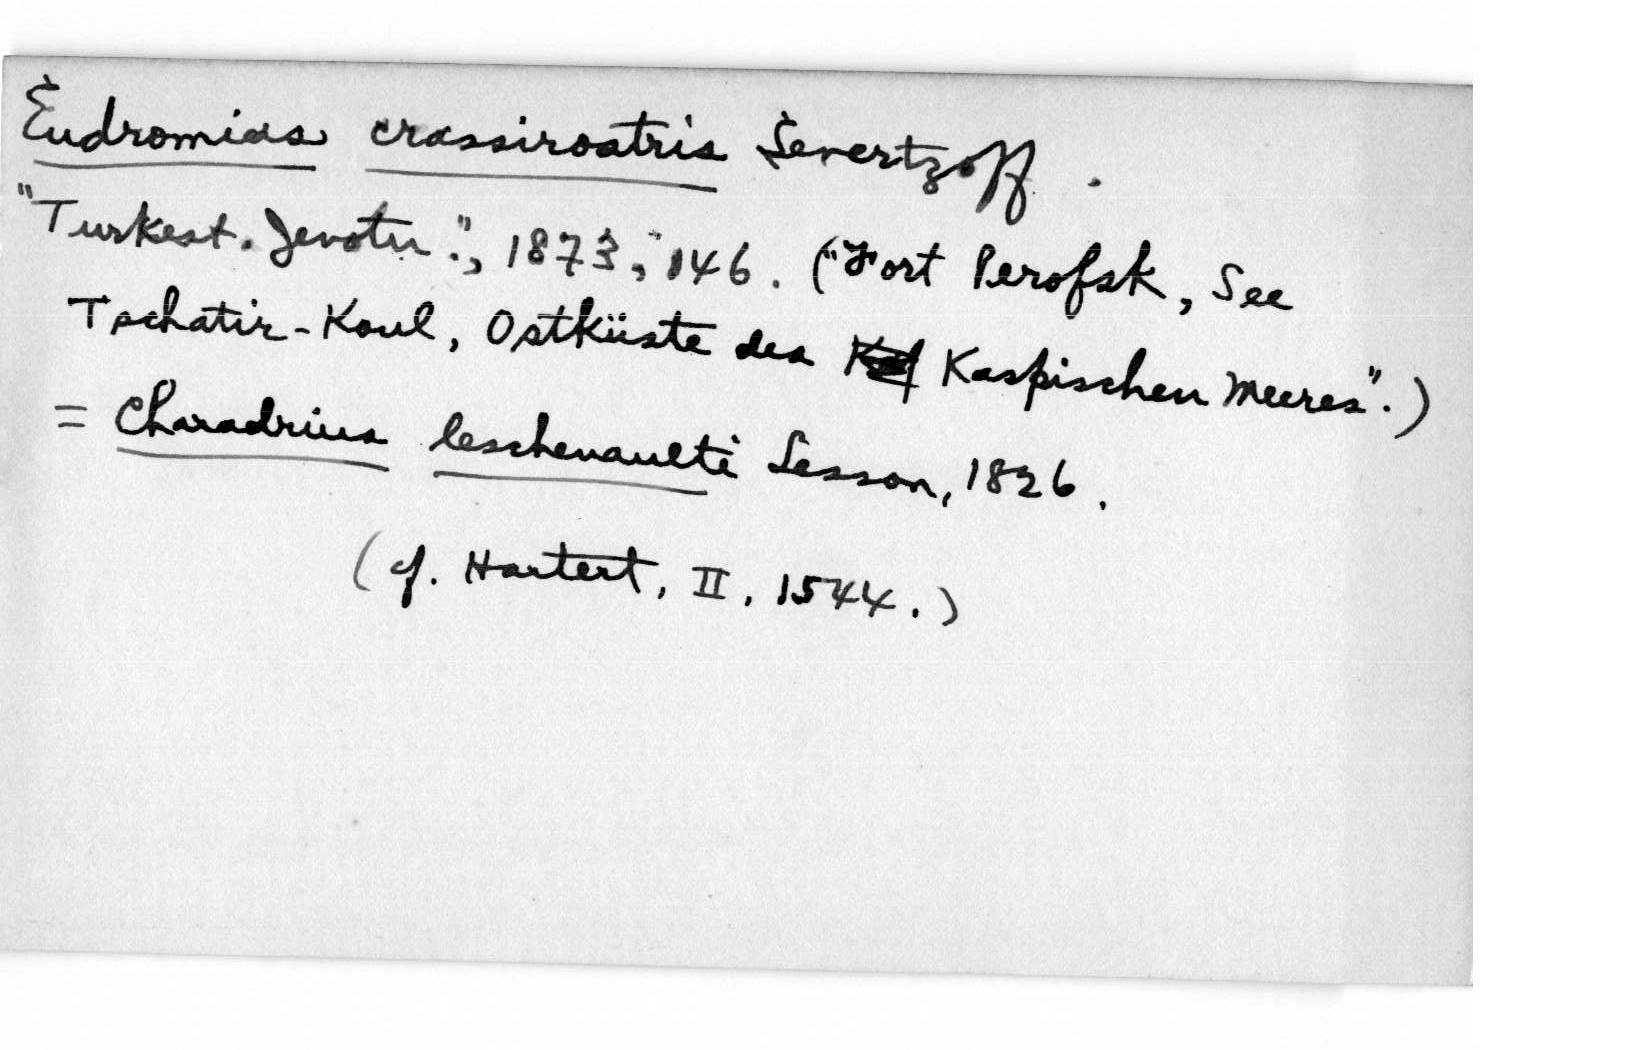 Eudromias crassirostris Severtzoff.
"Turkest. Jevotn.", 1873, 146. ("Fort Perofsk, See
Tschatir-Koul, Ostküste des Kaspischen Meeres".)
= Charadrius leschenaulti Lesson, 1826.
(cf. Hartert, II, 1544.)